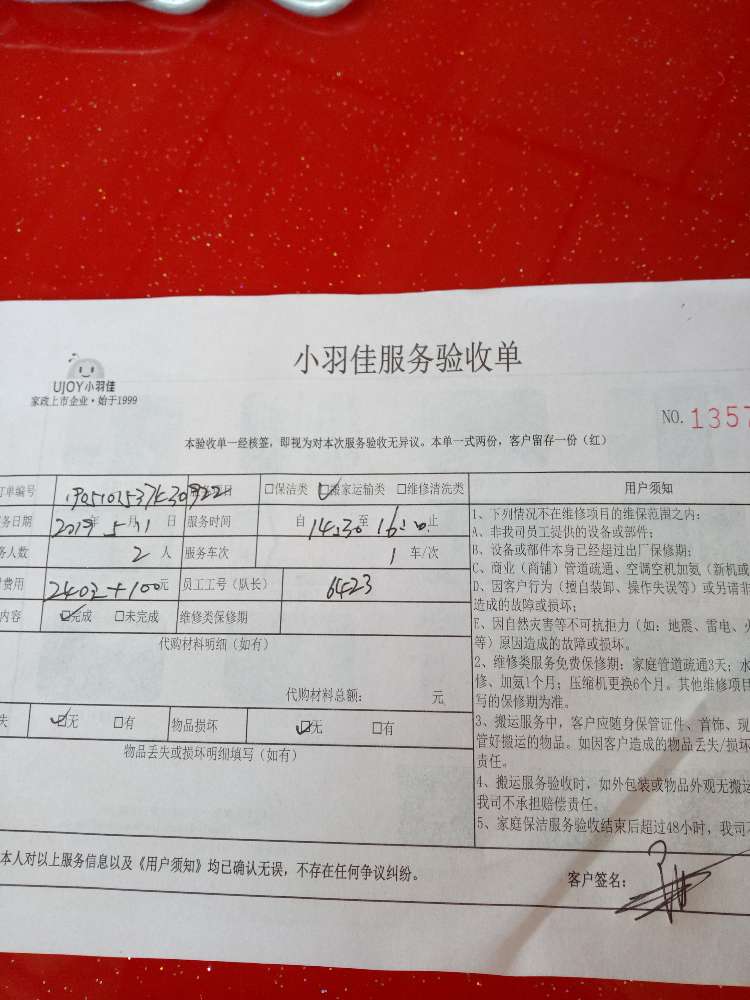 UJOY小羽佳
家政上市企业·始于1999
小羽佳服务验收单
NO. 1357
本验收单一经核签，即视为对本次服务验收无异议。本单一式两份，客户留存一份（红）
订单编号 □保洁类 ☑搬家运输类 □维修清洗类
务日期 2019年5月1日 服务时间 自 14:30至 16:20止
务人数 2 人 服务车次 1 车/次
费用 240元+100元 员工工号（队长） 6423
内容 ☑完成 □未完成 维修类保修期
代购材料明细（如有）
代购材料总额： 元
失 ☑无 □有 物品损坏 ☑无 □有
物品丢失或损坏明细填写（如有）
用户须知
1、下列情况不在维修项目的维保范围之内：
A、非我司员工提供的设备或部件；
B、设备或部件本身已经超过出厂保修期；
C、商业（商铺）管道疏通、空调空机加氨（新机或
D、因客户行为（擅自装卸、操作失误等）或另请非
造成的故障或损坏；
E、因自然灾害等不可抗拒力（如：地震、雷电、火
等）原因造成的故障或损坏。
2、维修类服务免费保修期：家庭管道疏通3天；水
修、加氨1个月；压缩机更换6个月。其他维修项目
写的保修期为准。
3、搬运服务中，客户应随身保管证件、首饰、现
管好搬运的物品。如因客户造成的物品丢失/损坏
责任。
4、搬运服务验收时，如外包装或物品外观无搬运
我司不承担赔偿责任。
5、家庭保洁服务验收结束后超过48小时，我司不
本人对以上服务信息以及《用户须知》均已确认无误，不存在任何争议纠纷。
客户签名：